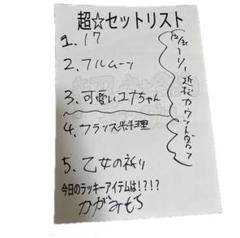 超☆セットリスト
1. 17
2. フルムーン
3. 可愛いユナちゃん
4. フランス料理
5. 乙女の祈り
今日のラッキーアイテムは!?!?
かがみもち
カウントダウン